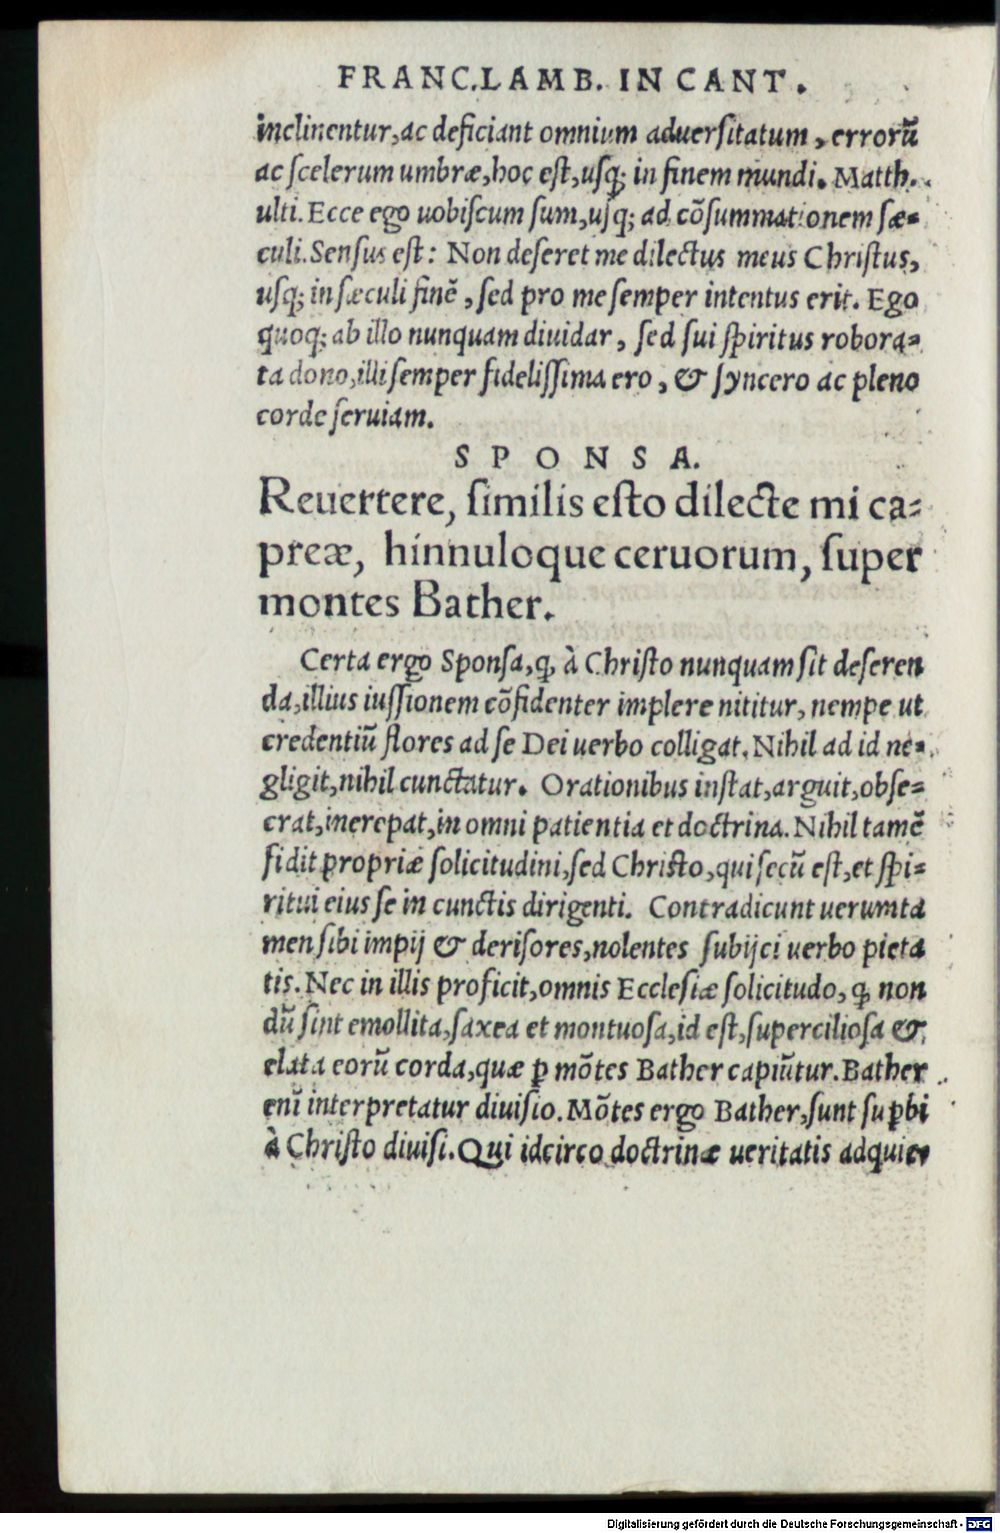 FRANC.LAMB. IN CANT.
inclinentur,ac deficiant omnium aduersitatum, errorũ
ac scelerum umbræ,hoc est,usq; in finem mundi. Matth.
ulti. Ecce ego uobiscum sum,usq; ad cõsummationem sæ-
culi. Sensus est: Non deseret me dilectus meus Christus,
usq; in sæculi finẽ, sed pro me semper intentus erit. Ego
quoq; ab illo nunquam diuidar, sed sui spiritus robora-
ta dono,illi semper fidelissima ero, & syncero ac pleno
corde seruiam.
SPONSA.
Reuertere, similis esto dilecte mi ca-
preæ, hinnuloque ceruorum, super
montes Bather.
Certa ergo Sponsa,q, à Christo nunquam sit deseren
da,illius iussionem cõfidenter implere nititur, nempe ut
credentiũ flores ad se Dei uerbo colligat. Nihil ad id ne-
gligit,nihil cunctatur. Orationibus instat,arguit,obse-
crat,increpat,in omni patientia et doctrina. Nihil tamẽ
fidit propriæ solicitudini,sed Christo,qui secũ est,et spi-
ritui eius se in cunctis dirigenti. Contradicunt uerumta
men sibi impij & derisores,nolentes subijci uerbo pieta
tis. Nec in illis proficit,omnis Ecclesiæ solicitudo,q, non
dũ sint emollita,saxea et montuosa,id est,superciliosa &
elata eorũ corda,quæ ꝑ mõtes Bather capiũtur. Bather
enĩ interpretatur diuisio. Mõtes ergo Bather,sunt suꝑbi
à Christo diuisi. Qui idcirco doctrinæ ueritatis adquie
Digitalisierung gefördert durch die Deutsche Forschungsgemeinschaft - DFG